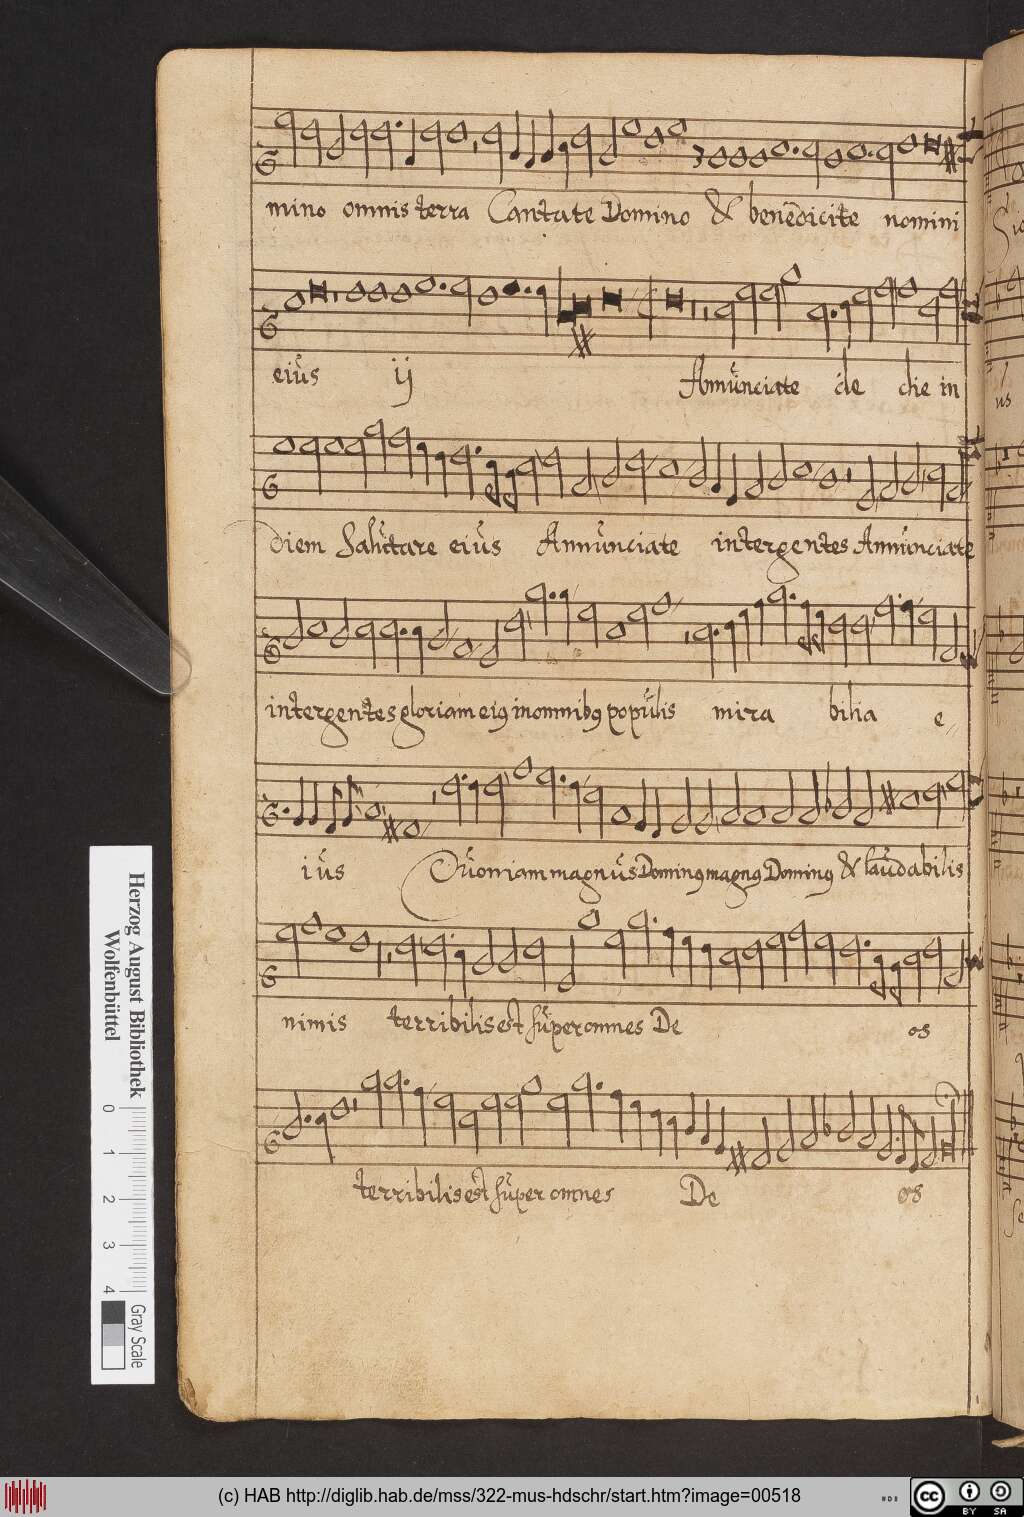 mino omnis terra Cantate Domino & benedicite nomini
eius ij Annunciate de die in
diem Salutare eius Annunciate intergentes Annunciate
intergentes gloriam ei9 in omnib9 populis mira bilia e
ius Quoniam magnus Domin9 magn9 Domin9 & laudabilis
nimis terribilis est super omnes De os
terribilis est super omnes De os
Herzog August Bibliothek
Wolfenbüttel
0 1 2 3 4
Gray Scale
(c) HAB http://diglib.hab.de/mss/322-mus-hdschr/start.htm?image=00518
cc BY SA